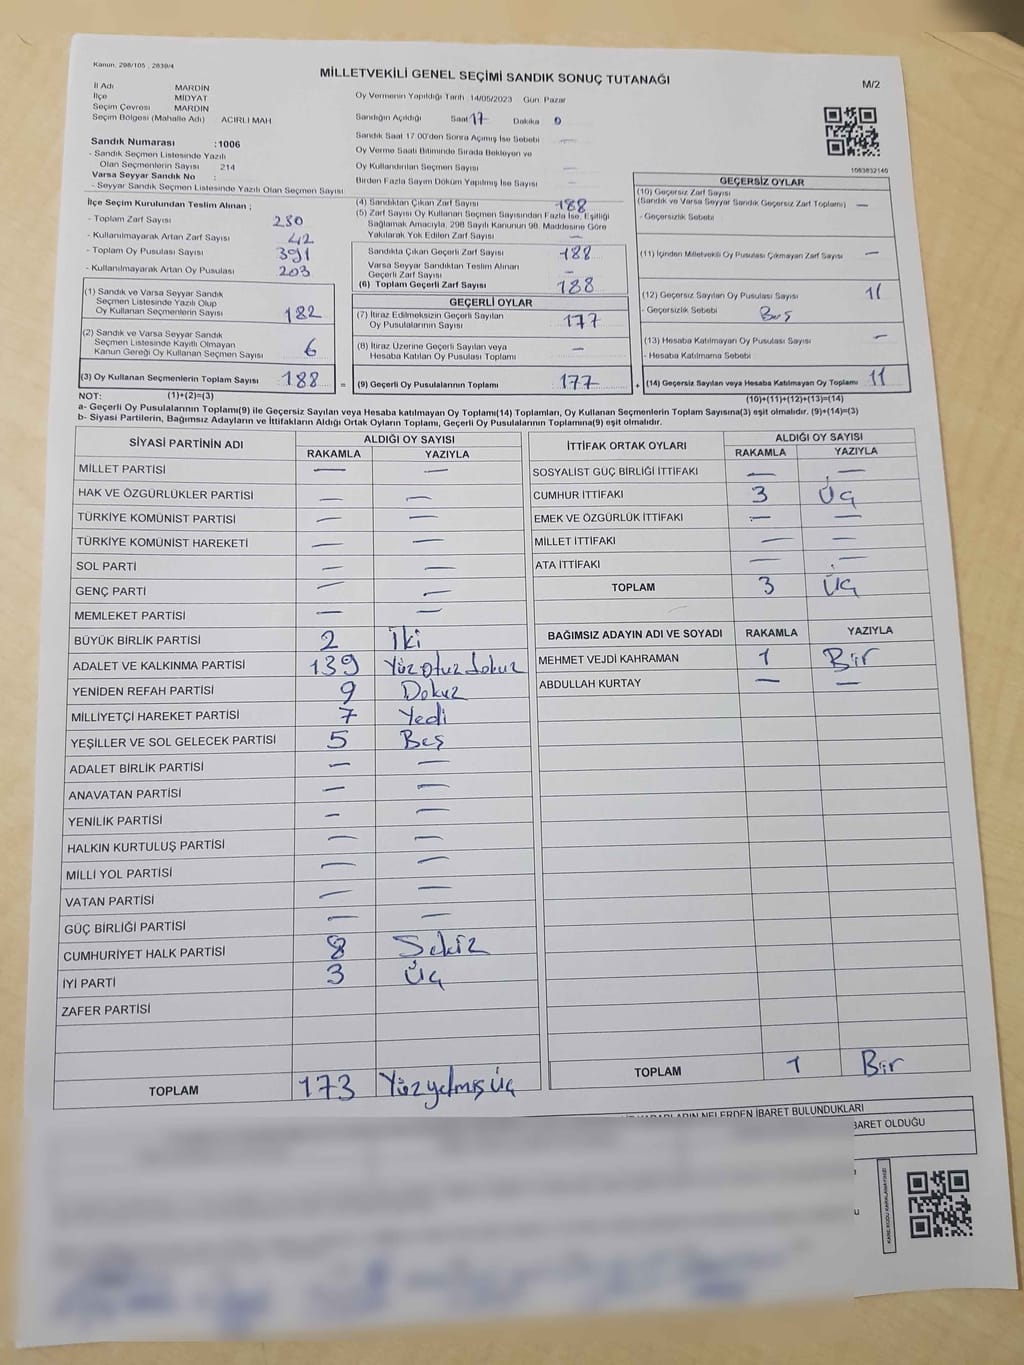 Kanun, 298/105 , 2839/4
MİLLETVEKİLİ GENEL SEÇİMİ SANDIK SONUÇ TUTANAĞI
M/2
İl Adı MARDİN
İlçe MİDYAT
Seçim Çevresi MARDİN
Seçim Bölgesi (Mahalle Adı) ACIRLI MAH
Sandık Numarası :1006
- Sandık Seçmen Listesinde Yazılı
Olan Seçmenlerin Sayısı 214
Varsa Seyyar Sandık No :
- Seyyar Sandık Seçmen Listesinde Yazılı Olan Seçmen Sayısı
Oy Vermenin Yapıldığı Tarih :14/05/2023 Gün: Pazar
Sandığın Açıldığı Saat 17 Dakika 0
Sandık Saat 17 00'den Sonra Açılmış İse Sebebi —
Oy Verme Saati Bitiminde Sırada Bekleyen ve
Oy Kullandırılan Seçmen Sayısı —
Birden Fazla Sayım Döküm Yapılmış İse Sayısı —
1063832140
İlçe Seçim Kurulundan Teslim Alınan ;
- Toplam Zarf Sayısı 230
- Kullanılmayarak Artan Zarf Sayısı 42
- Toplam Oy Pusulası Sayısı 391
- Kullanılmayarak Artan Oy Pusulası 203
(1) Sandık ve Varsa Seyyar Sandık
Seçmen Listesinde Yazılı Olup
Oy Kullanan Seçmenlerin Sayısı 182
(2) Sandık ve Varsa Seyyar Sandık
Seçmen Listesinde Kayıtlı Olmayan
Kanun Gereği Oy Kullanan Seçmen Sayısı 6
(3) Oy Kullanan Seçmenlerin Toplam Sayısı 188 =
(4) Sandıktan Çıkan Zarf Sayısı 188
(5) Zarf Sayısı Oy Kullanan Seçmen Sayısından Fazla İse, Eşitliği
Sağlamak Amacıyla, 298 Sayılı Kanunun 98. Maddesine Göre
Yakılarak Yok Edilen Zarf Sayısı —
Sandıkta Çıkan Geçerli Zarf Sayısı 188
Varsa Seyyar Sandıktan Teslim Alınan
Geçerli Zarf Sayısı —
(6) Toplam Geçerli Zarf Sayısı 188
GEÇERLİ OYLAR
(7) İtiraz Edilmeksizin Geçerli Sayılan
Oy Pusulalarının Sayısı 177
(8) İtiraz Üzerine Geçerli Sayılan veya
Hesaba Katılan Oy Pusulası Toplamı —
(9) Geçerli Oy Pusulalarının Toplamı 177 +
GEÇERSİZ OYLAR
(10) Geçersiz Zarf Sayısı
(Sandık ve Varsa Seyyar Sandık Geçersiz Zarf Toplamı) —
- Geçersizlik Sebebi
(11) İçinden Milletvekili Oy Pusulası Çıkmayan Zarf Sayısı —
(12) Geçersiz Sayılan Oy Pusulası Sayısı 11
- Geçersizlik Sebebi Boş
(13) Hesaba Katılmayan Oy Pusulası Sayısı —
- Hesaba Katılmama Sebebi
(14) Geçersiz Sayılan veya Hesaba Katılmayan Oy Toplamı 11
NOT: (1)+(2)=(3) (10)+(11)+(12)+(13)=(14)
a- Geçerli Oy Pusulalarının Toplamı(9) ile Geçersiz Sayılan veya Hesaba katılmayan Oy Toplamı(14) Toplamları, Oy Kullanan Seçmenlerin Toplam Sayısına(3) eşit olmalıdır. (9)+(14)=(3)
b- Siyasi Partilerin, Bağımsız Adayların ve İttifakların Aldığı Ortak Oyların Toplamı, Geçerli Oy Pusulalarının Toplamına(9) eşit olmalıdır.
SİYASİ PARTİNİN ADI ALDIĞI OY SAYISI
RAKAMLA YAZIYLA
MİLLET PARTİSİ — —
HAK VE ÖZGÜRLÜKLER PARTİSİ — —
TÜRKİYE KOMÜNİST PARTİSİ — —
TÜRKİYE KOMÜNİST HAREKETİ — —
SOL PARTİ — —
GENÇ PARTİ — —
MEMLEKET PARTİSİ — —
BÜYÜK BİRLİK PARTİSİ 2 İki
ADALET VE KALKINMA PARTİSİ 139 Yüz otuz dokuz
YENİDEN REFAH PARTİSİ 9 Dokuz
MİLLİYETÇİ HAREKET PARTİSİ 7 Yedi
YEŞİLLER VE SOL GELECEK PARTİSİ 5 Beş
ADALET BİRLİK PARTİSİ — —
ANAVATAN PARTİSİ — —
YENİLİK PARTİSİ — —
HALKIN KURTULUŞ PARTİSİ — —
MİLLİ YOL PARTİSİ — —
VATAN PARTİSİ — —
GÜÇ BİRLİĞİ PARTİSİ — —
CUMHURİYET HALK PARTİSİ 8 Sekiz
İYİ PARTİ 3 Üç
ZAFER PARTİSİ
TOPLAM 173 Yüz yetmiş üç
İTTİFAK ORTAK OYLARI ALDIĞI OY SAYISI
RAKAMLA YAZIYLA
SOSYALİST GÜÇ BİRLİĞİ İTTİFAKI — —
CUMHUR İTTİFAKI 3 Üç
EMEK VE ÖZGÜRLÜK İTTİFAKI — —
MİLLET İTTİFAKI — —
ATA İTTİFAKI — —
TOPLAM 3 Üç
BAĞIMSIZ ADAYIN ADI VE SOYADI RAKAMLA YAZIYLA
MEHMET VEJDİ KAHRAMAN 1 Bir
ABDULLAH KURTAY — —
TOPLAM 1 Bir
NELERDEN İBARET BULUNDUKLARI
OLDUĞU